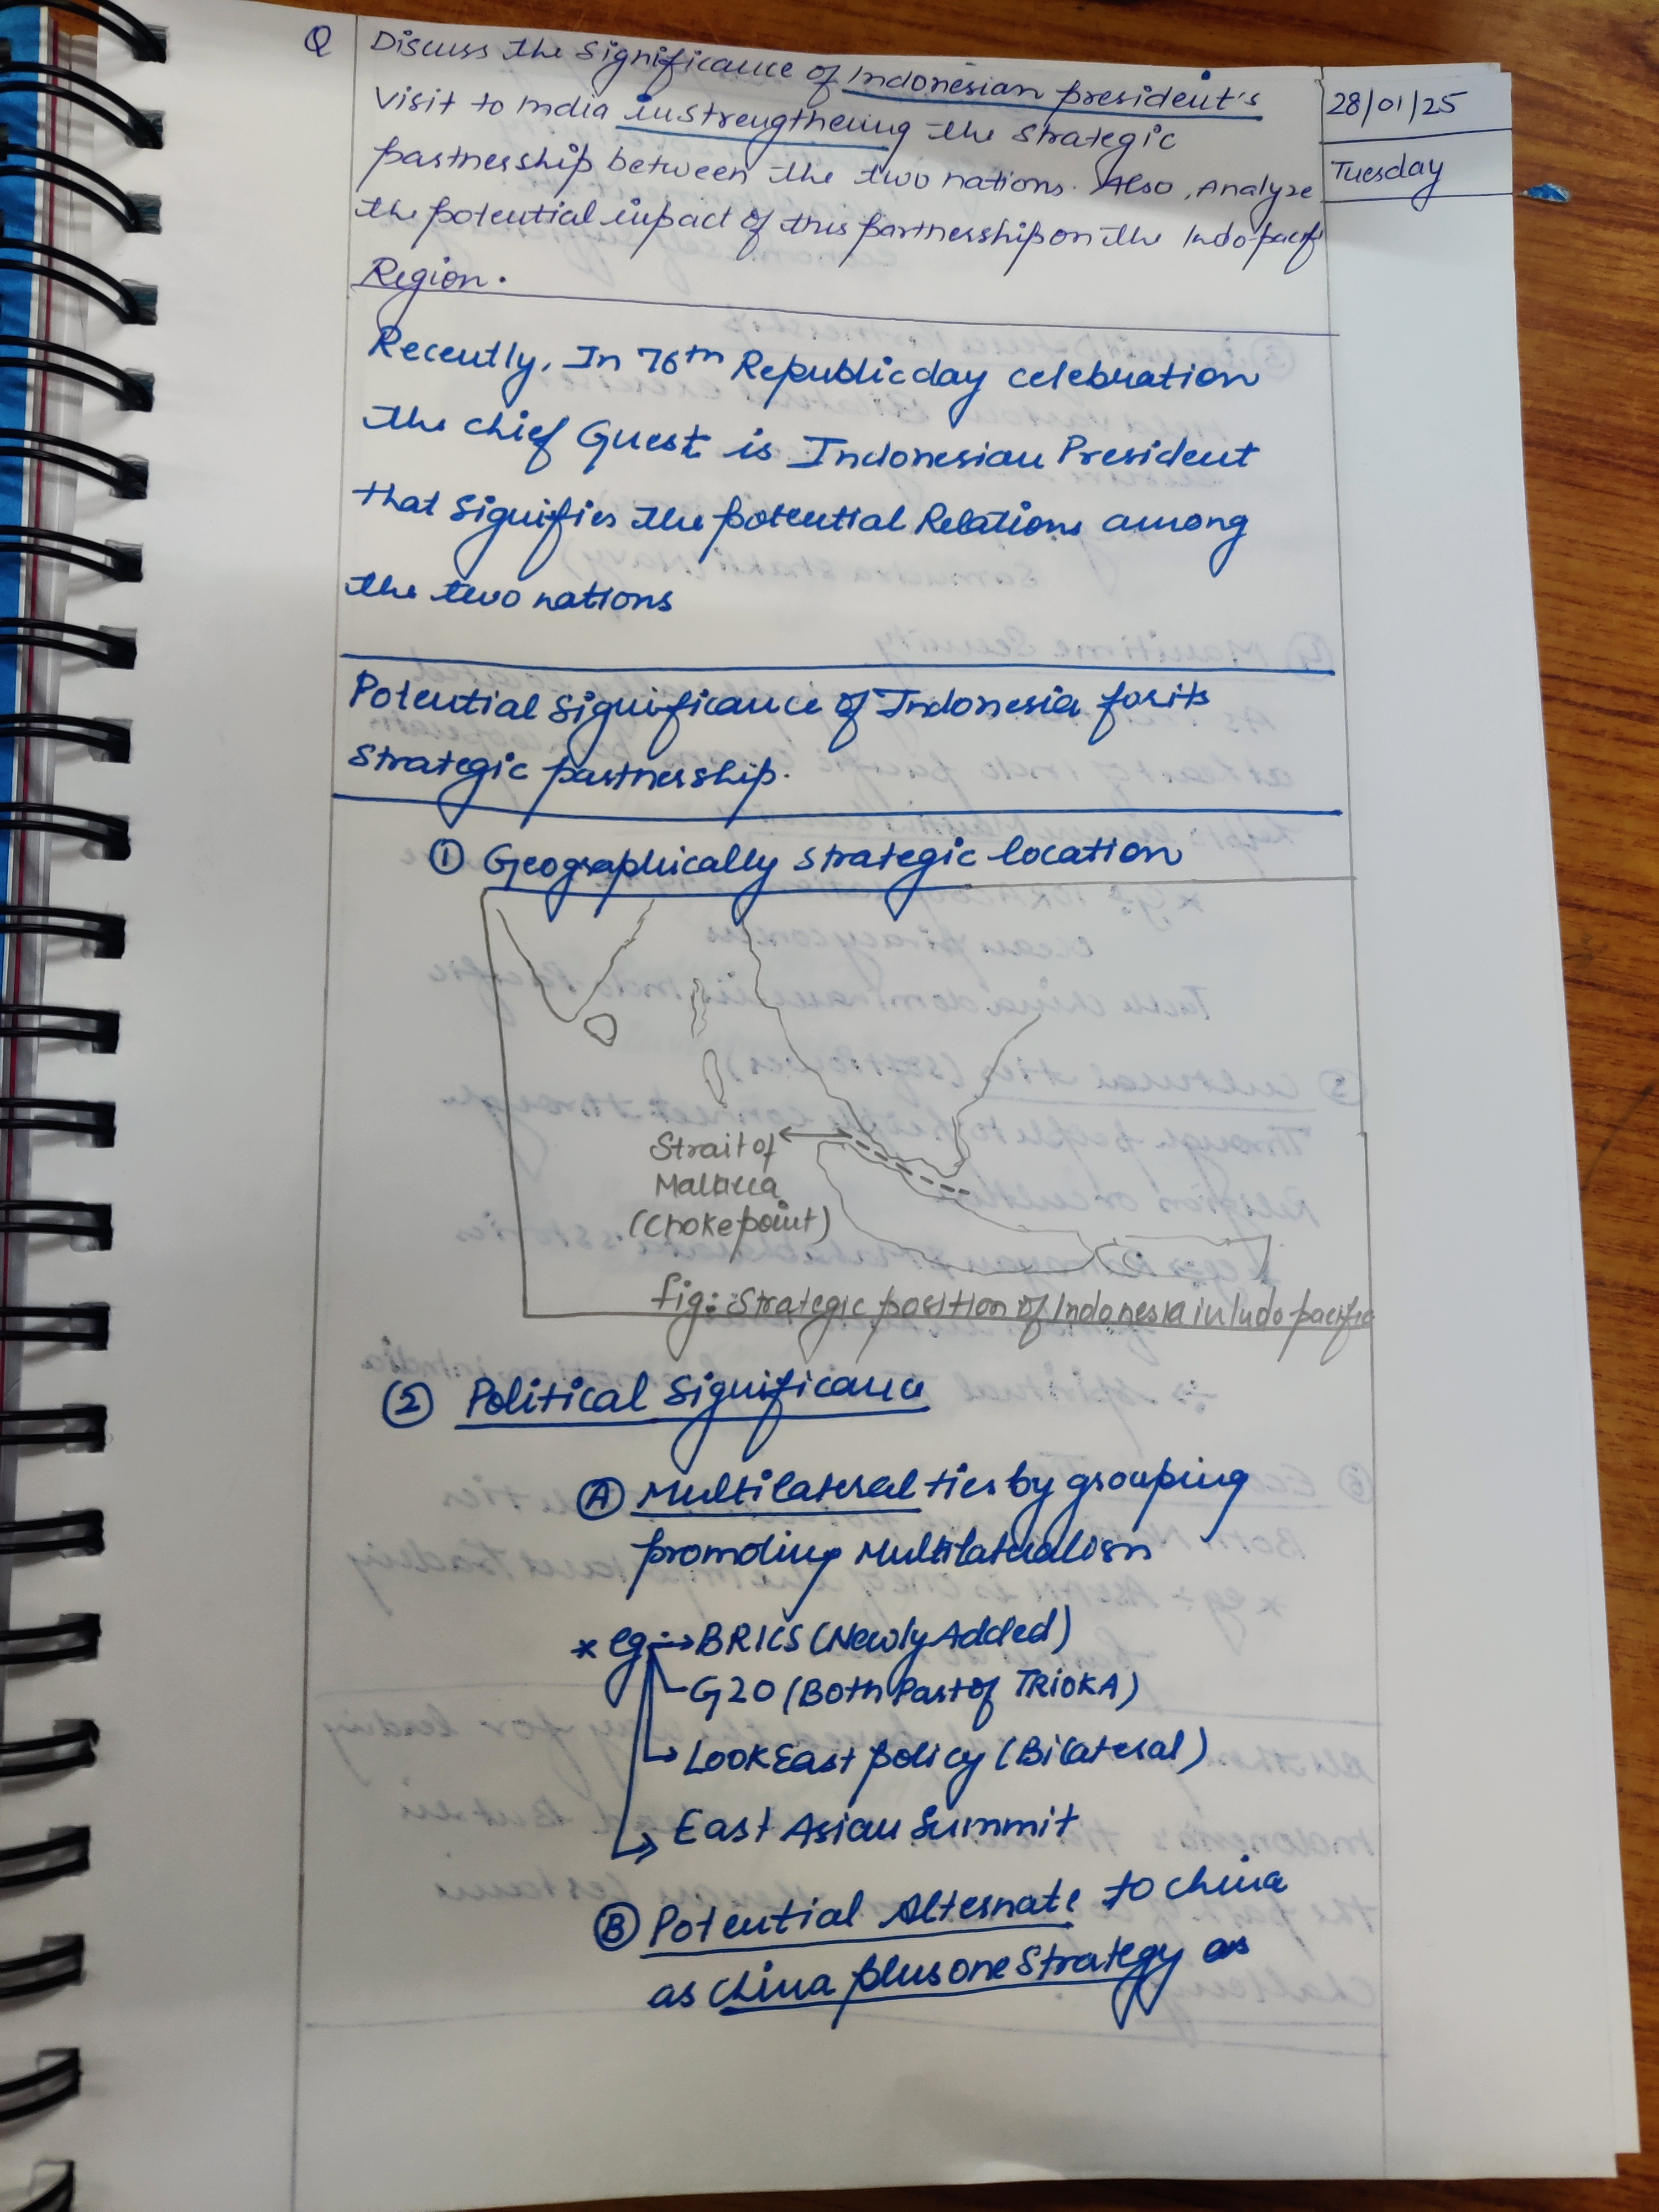 Q Discuss the Significance of Indonesian president's
28/01/25
visit to India instrengthening the strategic
Tuesday
partnership between the two nations. Also, Analyze
the potential impact of this partnership on the Indo pacifi
Region.
Recently, In 76th Republic day celebration
the chief Guest is Indonesian President
that signifies the potential Relations among
the two nations
Potential significance of Indonesia for its
strategic partnership.
① Geographically strategic location
Strait of
Mallacca
(Choke point)
fig:- Strategic position of Indonesia in Indo pacific
② Political Significance
Ⓐ Multilateral ties by grouping
promoting Multilateralism
* eg:→ BRICS (Newly Added)
G20 (Both Part of TRIOKA)
Look East policy (Bilateral)
East Asian Summit
Ⓑ Potential Alternate to China
as China plus one Strategy as